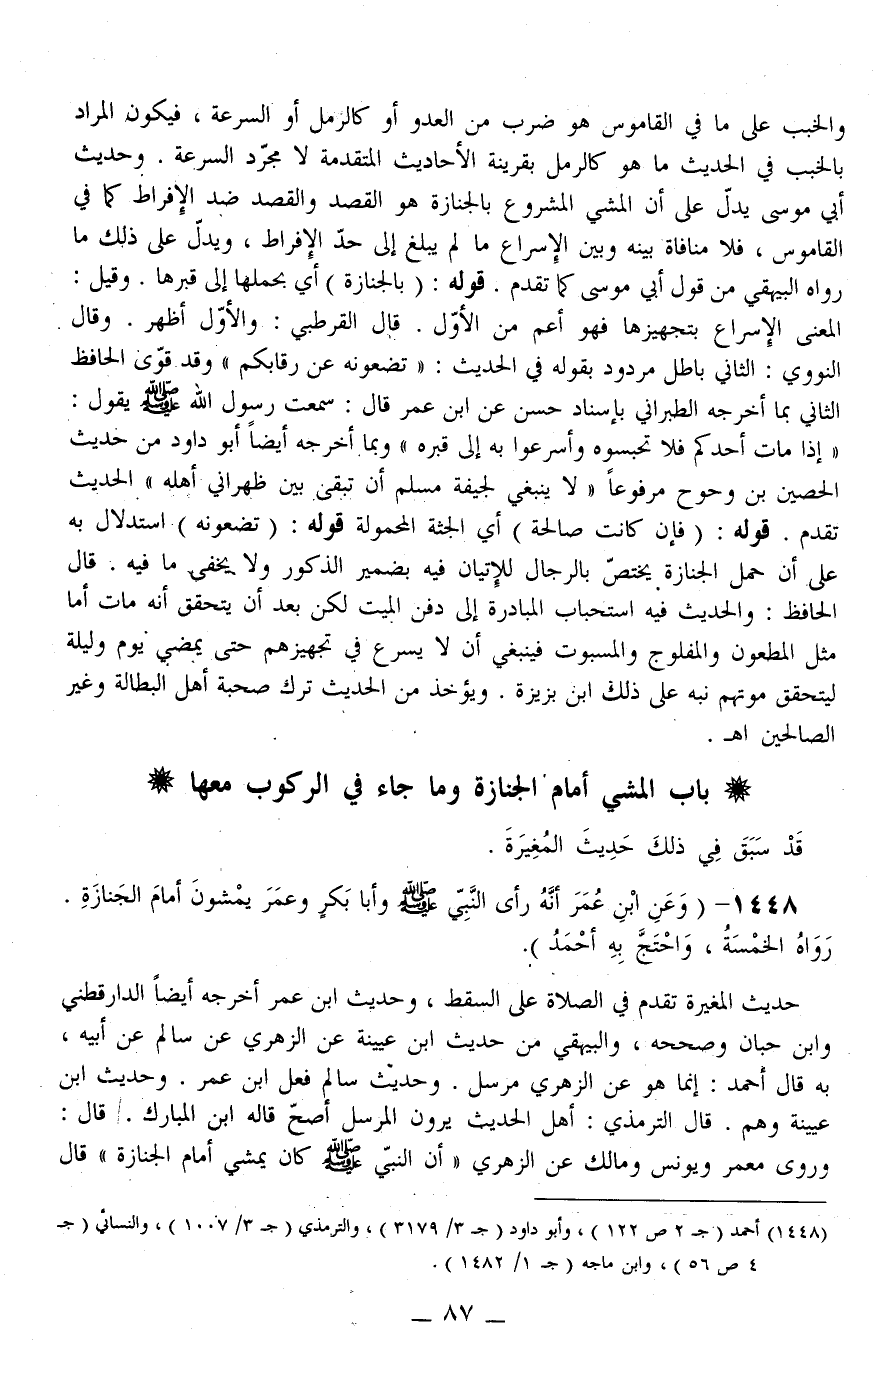 والخبب على ما في القاموس هو ضرب من العدو أو كالرمل أو السرعة ، فيكون المراد
بالخبب في الحديث ما هو كالرمل بقرينة الأحاديث المتقدمة لا مجرّد السرعة . وحديث
أبي موسى يدلّ على أن المشي المشروع بالجنازة هو القصد والقصد ضد الإفراط كما في
القاموس ، فلا منافاة بينه وبين الإسراع ما لم يبلغ إلى حدّ الإفراط ، ويدلّ على ذلك ما
رواه البيهقي من قول أبي موسى كما تقدم . قوله : ( بالجنازة ) أي بحملها إلى قبرها . وقيل :
المعنى الإسراع بتجهيزها فهو أعم من الأوّل . قال القرطبي : والأوّل أظهر . وقال
النووي : الثاني باطل مردود بقوله في الحديث : « تضعونه عن رقابكم » وقد قوّى الحافظ
الثاني بما أخرجه الطبراني بإسناد حسن عن ابن عمر قال : سمعت رسول الله ﷺ يقول :
« إذا مات أحدكم فلا تحبسوه وأسرعوا به إلى قبره » وبما أخرجه أيضاً أبو داود من حديث
الحصين بن وحوح مرفوعاً « لا ينبغي لجيفة مسلم أن تبقى بين ظهراني أهله » الحديث
تقدم . قوله : ( فإن كانت صالحة ) أي الجثة المحمولة قوله : ( تضعونه ) استدلال به
على أن حمل الجنازة يختصّ بالرجال للإتيان فيه بضمير الذكور ولا يخفى ما فيه . قال
الحافظ : والحديث فيه استحباب المبادرة إلى دفن الميت لكن بعد أن يتحقق أنه مات أما
مثل المطعون والمفلوج والمسبوت فينبغي أن لا يسرع في تجهيزهم حتى يمضي يوم وليلة
ليتحقق موتهم نبه على ذلك ابن بزيزة . ويؤخذ من الحديث ترك صحبة أهل البطالة وغير
الصالحين اهـ .
✵ باب المشي أمام الجنازة وما جاء في الركوب معها ✵
قَدْ سَبَقَ فِي ذلكَ حَدِيثَ المُغِيرَةَ .
١٤٤٨- ( وَعَنِ ابْنِ عُمَرَ أنَّهُ رأى النَّبِيّ ﷺ وأبا بَكرٍ وعمَرَ يمْشونَ أمامَ الجَنازَةِ .
رَوَاهُ الخمْسَةُ ، وَاحْتَجَّ بِهِ أحْمَدُ ).
حديث المغيرة تقدم في الصلاة على السقط ، وحديث ابن عمر أخرجه أيضاً الدارقطني
وابن حبان وصححه ، والبيهقي من حديث ابن عيينة عن الزهري عن سالم عن أبيه ،
به قال أحمد : إنما هو عن الزهري مرسل . وحديث سالم فعل ابن عمر . وحديث ابن
عيينة وهم . قال الترمذي : أهل الحديث يرون المرسل أصحّ قاله ابن المبارك . قال :
وروى معمر ويونس ومالك عن الزهري « أن النبيّ ﷺ كان يمشي أمام الجنازة » قال
(١٤٤٨) أحمد ( جـ ٢ ص ١٢٢ ) ، وأبو داود ( جـ ٣/ ٣١٧٩ ) ، والترمذي ( جـ ٣/ ١٠٠٧ ) ، والنسائي ( جـ
٤ ص ٥٦ ) ، وابن ماجه ( جـ ١/ ١٤٨٢ ) .
— ٨٧ —